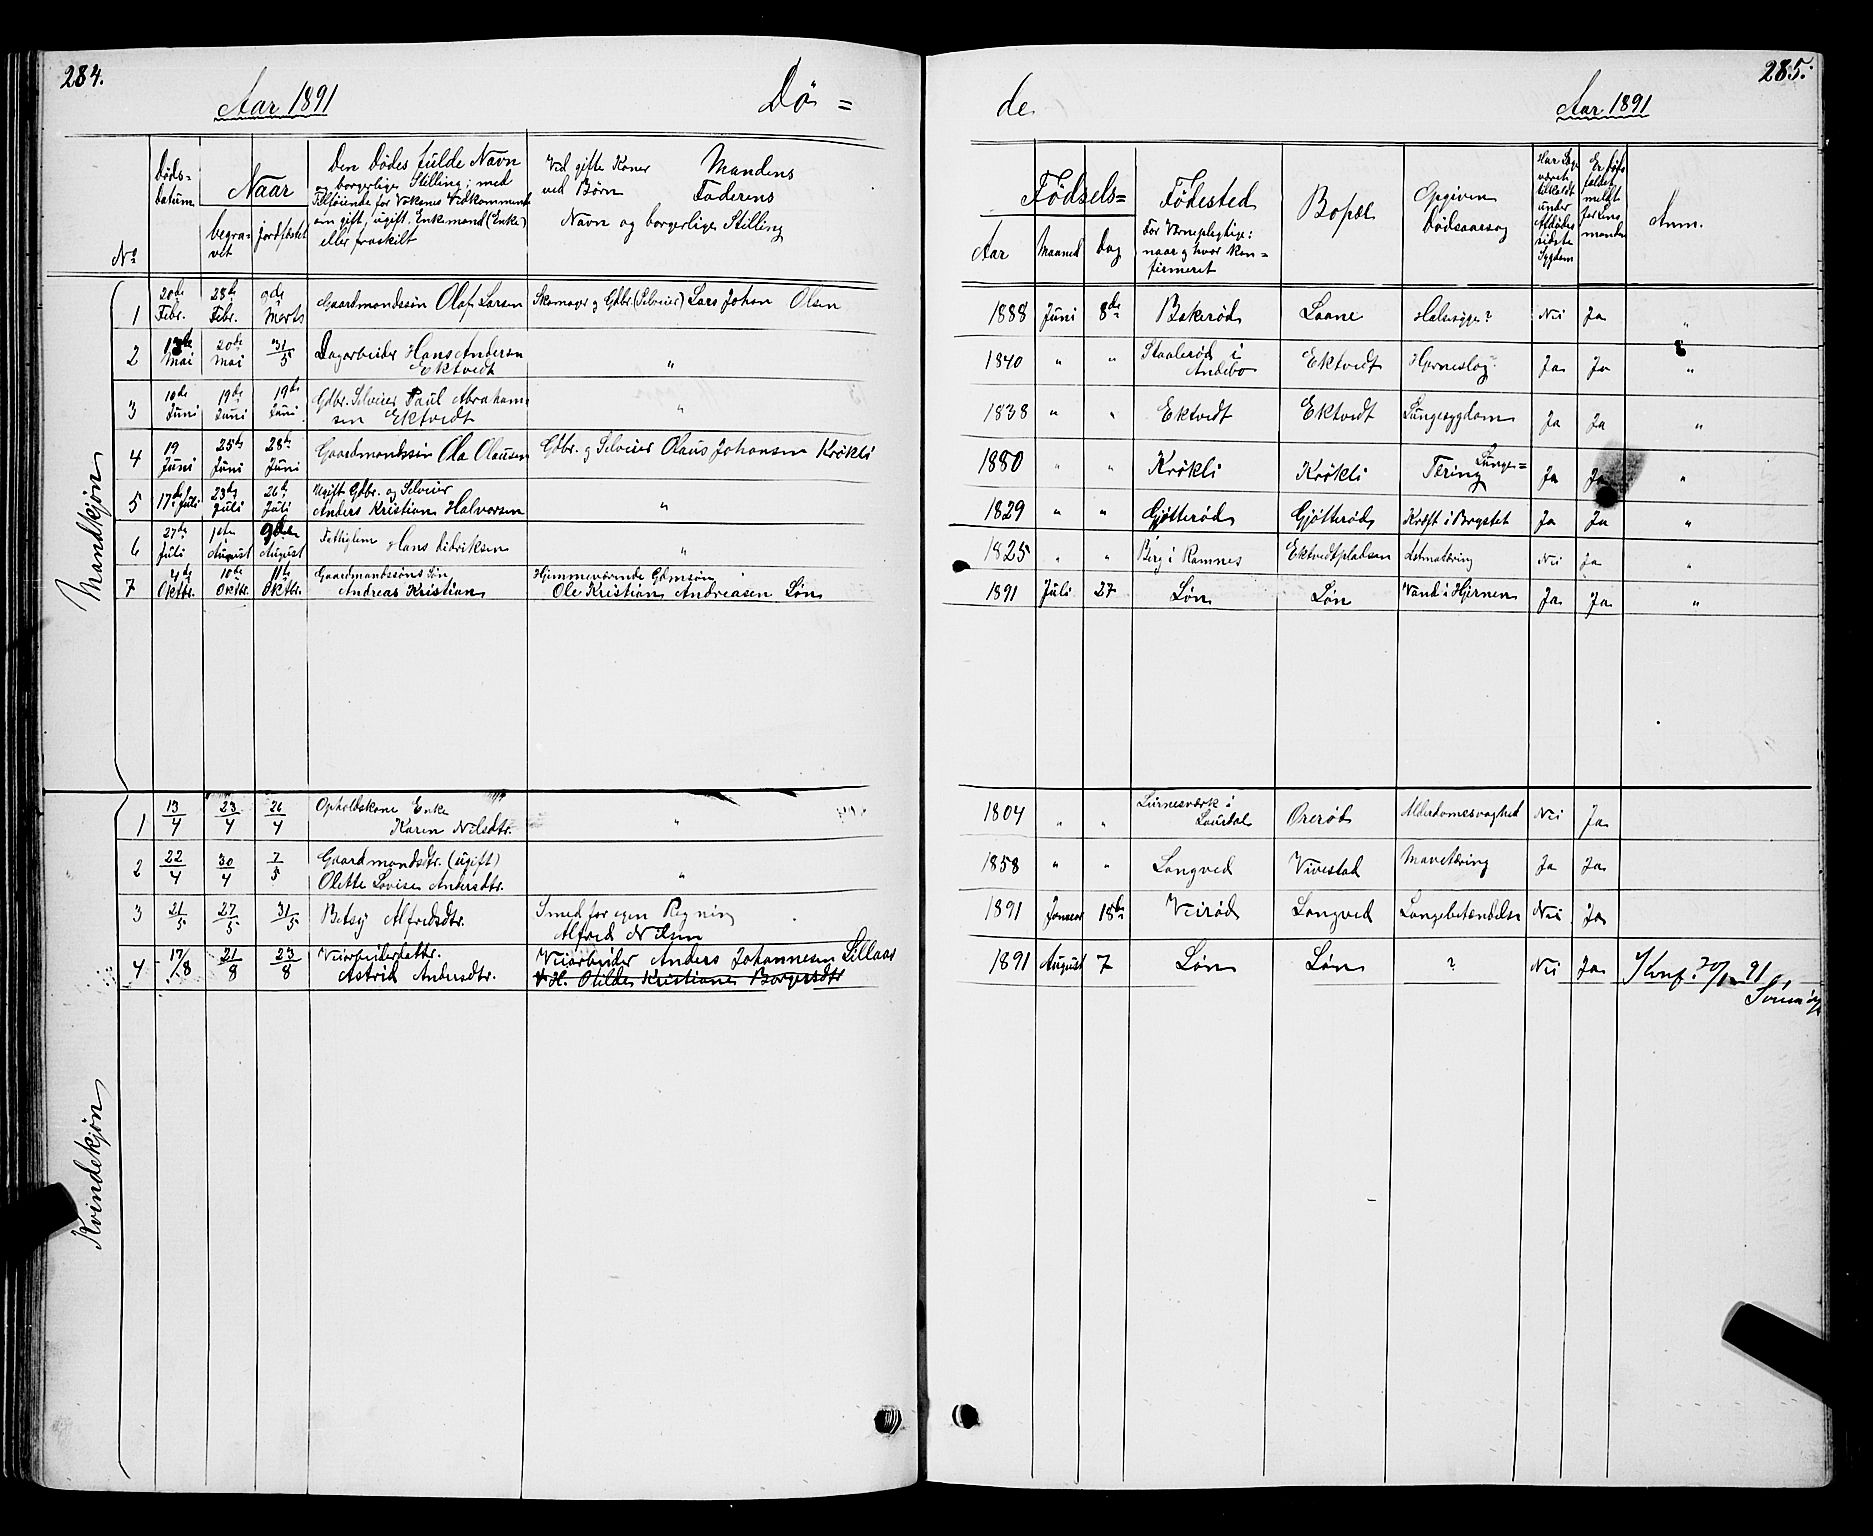 284.
Aar 1891
Dø =
Døds-
datum
Naar
Den Dødes fulde Navn
og borgerlige Stilling; med
Tilføiende for Voksnes Vedkommende
om gift, ugift, Enkemand (Enke)
eller fraskilt
Ved gifte Koner Mandens
ved Børn Faderens
Navn og borgerlige Stilling
No
begra-
vet
jordfæstet
Mandkjøn
1 20de Febr. 28de Febr. 9de Marts Gaardmandssøn Olaf Larsen Skomager og Gdbr. (Selveier) Lars Johan Olsen
2 13de Mai 20de Mai 31/5 Dagarbeider Hans Andersen
Ektvedt "
3 10de Juni 19de Juni 19de Juni Gdbr. Selveier Paul Abraham-
sen Ektvedt "
4 19 Juni 25de Juni 28de Juni Gaardmandssøn Ola Olausen Gdbr. og Selveier Olaus Johansen Krøkli
5 17de Juli 23de Juli 26de Juli Ugift Gdbr. og Selveier
Anders Kristian Halvorsen "
6 27de Juli 1ste August 9de August Fattiglem Hans Didriksen "
7 4de Oktbr. 10de Oktbr. 11te Oktbr. Gaardmandssøns Søn
Andreas Kristian
Hjemmeværende Gdmsøn
Ole Kristian Andreasen Løn
Kvindekjøn
1 13/4 23/4 26/4 Opholdskone Enke
Karen Nilsdtr. "
2 22/4 30/4 7/5 Gaardmandsdtr. (ugift)
Olette Lovise Andersdtr. "
3 21/5 27/5 31/5 Betsy Alfredsdtr. Smed for egen Regning
Alfred Nilsen
4 17/8 21/8 23/8 Veiarbeiderdatter.
Astrid Andersdtr.
Veiarbeider Anders Johannesen Lillaas
& H. Otilde Kristiane Borgersdtr
285.
de
Aar 1891
Fødsels=
Aar Maaned Dag
Fødested
For Vernepligtige:
naar og hvor kon=
firmeret
Bopæl
Opgiven
Dødsaarsag
Har Læge
været
tilkaldt
under
Afdødes
sidste
Sygdom
Er Døds
faldet
meldt
for Lens
manden
Anm.
1888 Juni 8de Bakerød Laane Halssyge? Nei Ja "
1840 " " Staalerød i
Andebo Ektvedt Hjerneslag? Ja Ja "
1838 " " Ektvedt Ektvedt Lungesygdom Ja Ja "
1880 " " Krøkli Krøkli Lunge=
Tæring Ja Ja "
1829 " " Gjøtterød Gjøtterød Kræft i Brystet Ja Ja "
1825 " " Berg i Ramnes Ektvedtpladsen Nei Ja "
1891 Juli 27 Løn Løn Vand i Hjernen Ja Ja "
1804 " " i
Laurdal Orerød Alderdomssvaghed Nei Ja
1858 " " Langved Vivestad Mavetæring Ja Ja
1891 Januar 18de Veirød Langved Lungebetændelse Nei Ja
1891 August 7 Løn Løn ? Nei Ja